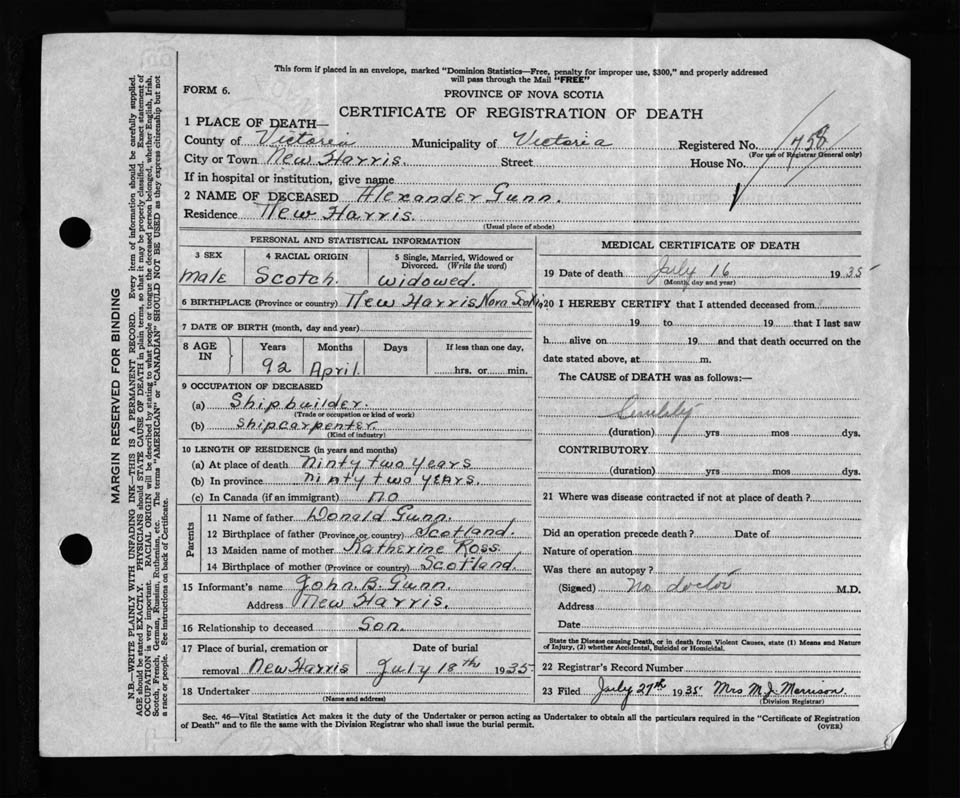 This form if placed in an envelope, marked "Dominion Statistics—Free, penalty for improper use, $300," and properly addressed
will pass through the Mail "FREE"
FORM 6.
PROVINCE OF NOVA SCOTIA
CERTIFICATE OF REGISTRATION OF DEATH
1 PLACE OF DEATH—
County of Victoria Municipality of Victoria Registered No. 758
(For use of Registrar General only)
City or Town New Harris. Street House No.
If in hospital or institution, give name
2 NAME OF DECEASED Alexander Gunn.
Residence New Harris.
(Usual place of abode)
PERSONAL AND STATISTICAL INFORMATION
3 SEX 4 RACIAL ORIGIN 5 Single, Married, Widowed or
Divorced. (Write the word)
male Scotch. widowed.
6 BIRTHPLACE (Province or country) New Harris, Nova Scotia
7 DATE OF BIRTH (month, day and year)
8 AGE IN Years Months Days If less than one day,
92 April hrs. or min.
9 OCCUPATION OF DECEASED
(a) Shipbuilder.
(Trade or occupation or kind of work)
(b) shipcarpenter.
(Kind of industry)
10 LENGTH OF RESIDENCE (in years and months)
(a) At place of death ninty two years
(b) In province ninty two years.
(c) In Canada (if an immigrant) no
Parents
11 Name of father Donald Gunn.
12 Birthplace of father (Province or country) Scotland.
13 Maiden name of mother Katherine Ross.
14 Birthplace of mother (Province or country) Scotland.
15 Informant's name John. B. Gunn.
Address New Harris.
16 Relationship to deceased Son.
17 Place of burial, cremation or Date of burial
removal New Harris July 18th 1935
18 Undertaker
(Name and address)
MEDICAL CERTIFICATE OF DEATH
19 Date of death July 16 1935
(Month, day and year)
20 I HEREBY CERTIFY that I attended deceased from
19 to 19 that I last saw
h alive on 19 and that death occurred on the
date stated above, at m.
The CAUSE of DEATH was as follows:—
(duration) yrs mos dys.
CONTRIBUTORY
(duration) yrs mos dys.
21 Where was disease contracted if not at place of death?
Did an operation precede death? Date of
Nature of operation
Was there an autopsy?
(Signed) no doctor M.D.
Address
Date
State the Disease causing Death, or in death from Violent Causes, state (1) Means and Nature
of Injury, (2) whether Accidental, Suicidal or Homicidal.
22 Registrar's Record Number
23 Filed July 27th 1935 Mrs M. J. Morrison
(Division Registrar)
Sec. 46—Vital Statistics Act makes it the duty of the Undertaker or person acting as Undertaker to obtain all the particulars required in the "Certificate of Registration
of Death" and to file the same with the Division Registrar who shall issue the burial permit.
(OVER)
MARGIN RESERVED FOR BINDING
N.B.—WRITE PLAINLY WITH UNFADING INK—THIS IS A PERMANENT RECORD. Every item of information should be carefully supplied.
AGE should be stated EXACTLY. PHYSICIANS should STATE CAUSE OF DEATH in plain terms, so that it may be properly classified. Exact statement of
OCCUPATION is very important. RACIAL ORIGIN will be described by stating to what people or tongue the deceased person belonged, whether English, Irish,
Scotch, French, German, Russian, Ruthenian, etc. The terms "AMERICAN" or "CANADIAN" SHOULD NOT BE USED as they express citizenship but not
a race or people. See instructions on back of Certificate.